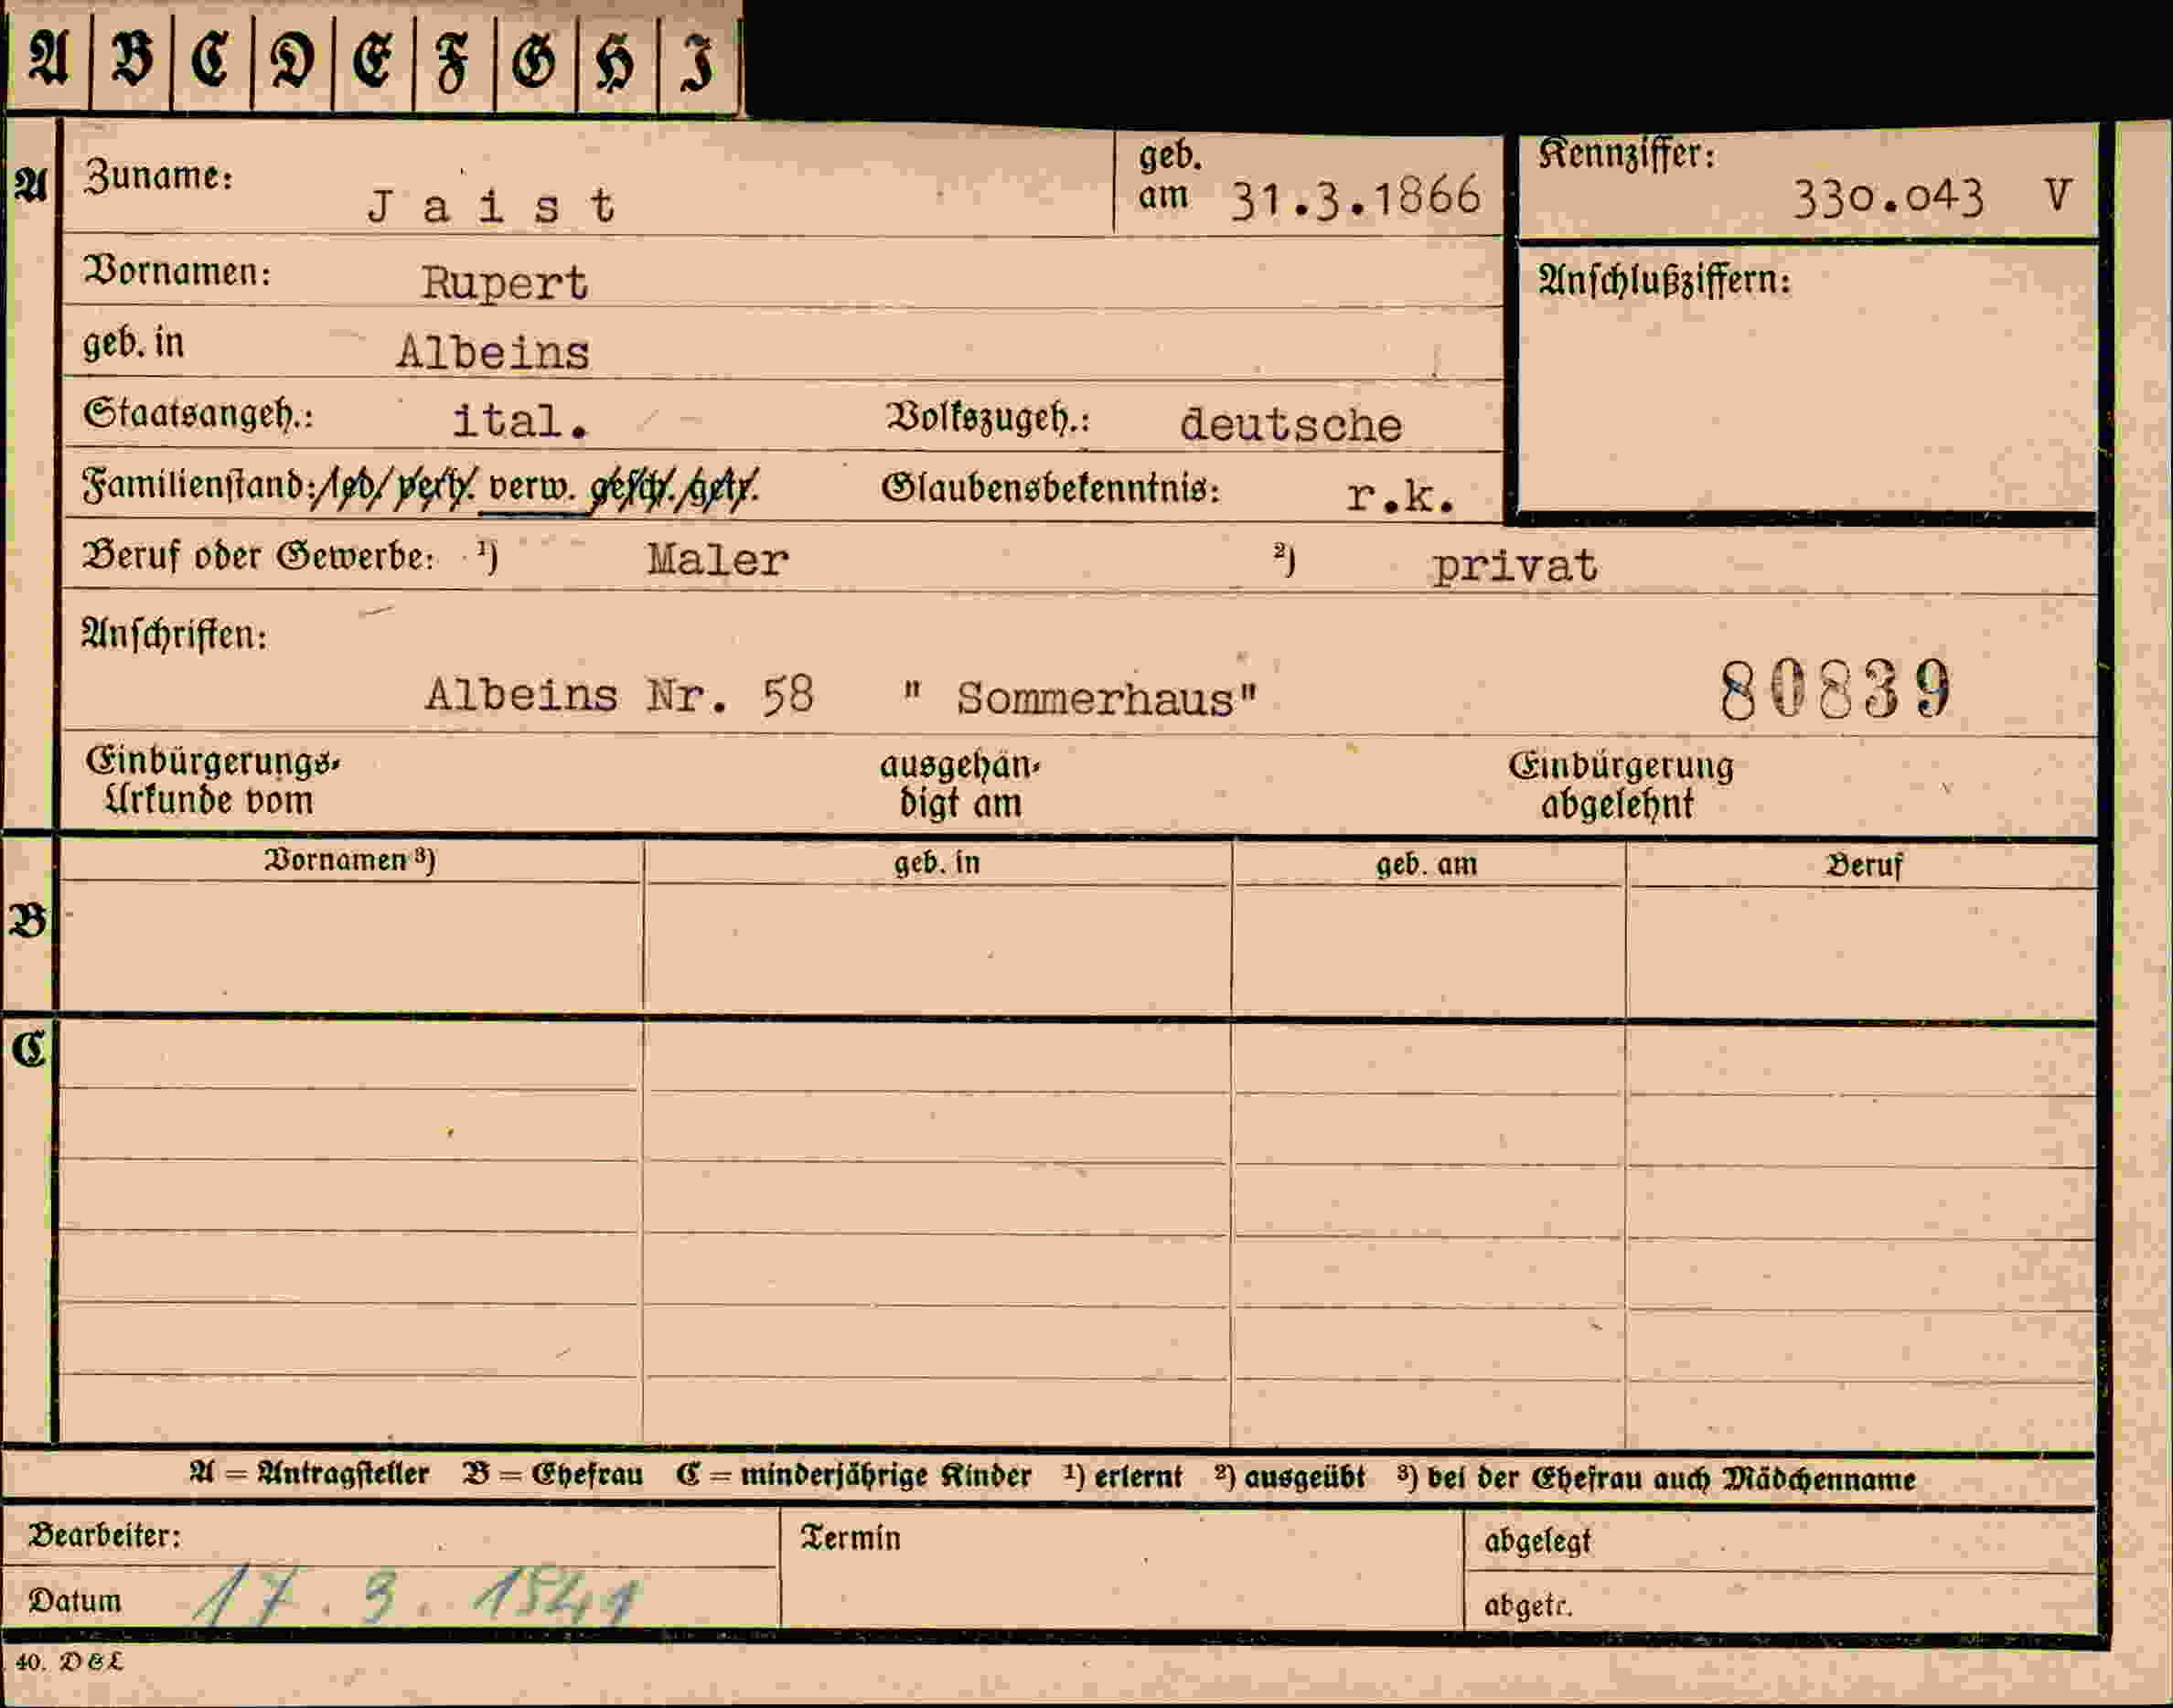 A B C D E F G H I
A Zuname: Jaist geb. am 31.3.1866 Kennziffer: 330.043 V
Vornamen: Rupert Anschlußziffern:
geb. in Albeins
Staatsangeh.: ital. Volkszugeh.: deutsche
Familienstand: led. verh. verw. gesch. getr. Glaubensbekenntnis: r.k.
Beruf oder Gewerbe: ¹) Maler ²) privat
Anschriften:
Albeins Nr. 58 " Sommerhaus" 80839
Einbürgerungs- ausgehän- Einbürgerung
Urkunde vom digt am abgelehnt
Vornamen ³) geb. in geb. am Beruf
B
C
A = Antragsteller B = Ehefrau C = minderjährige Kinder ¹) erlernt ²) ausgeübt ³) bei der Ehefrau auch Mädchenname
Bearbeiter: Termin abgelegt
Datum 17. 9. 1941 abgetr.
40. D&L